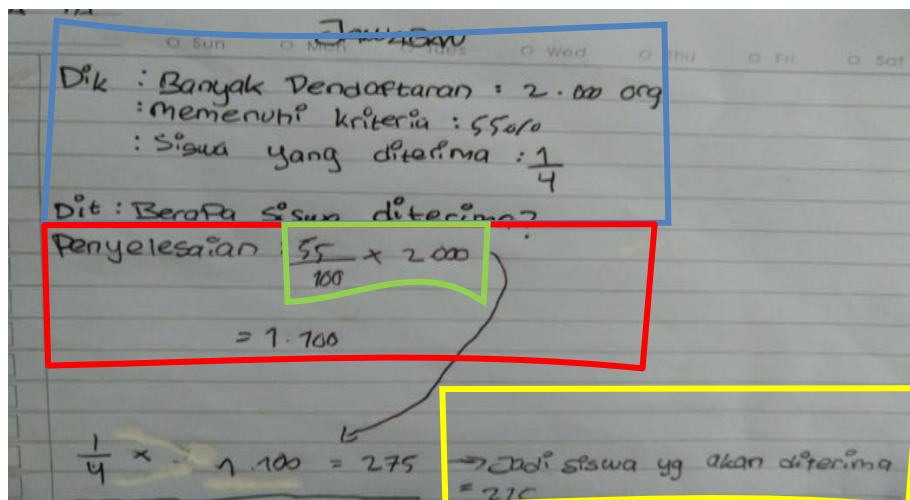 Jawaban
Sun Mon Tues Wed Thu Fri Sat
Dik : Banyak Pendaftaran : 2.000 org
: memenuhi kriteria : 55%
: Siswa yang diterima : 1/4
Dit : Berapa siswa diterima?
Penyelesaian : 55/100 × 2000
= 1.100
1/4 × 1.100 = 275 → Jadi siswa yg akan diterima
= 275